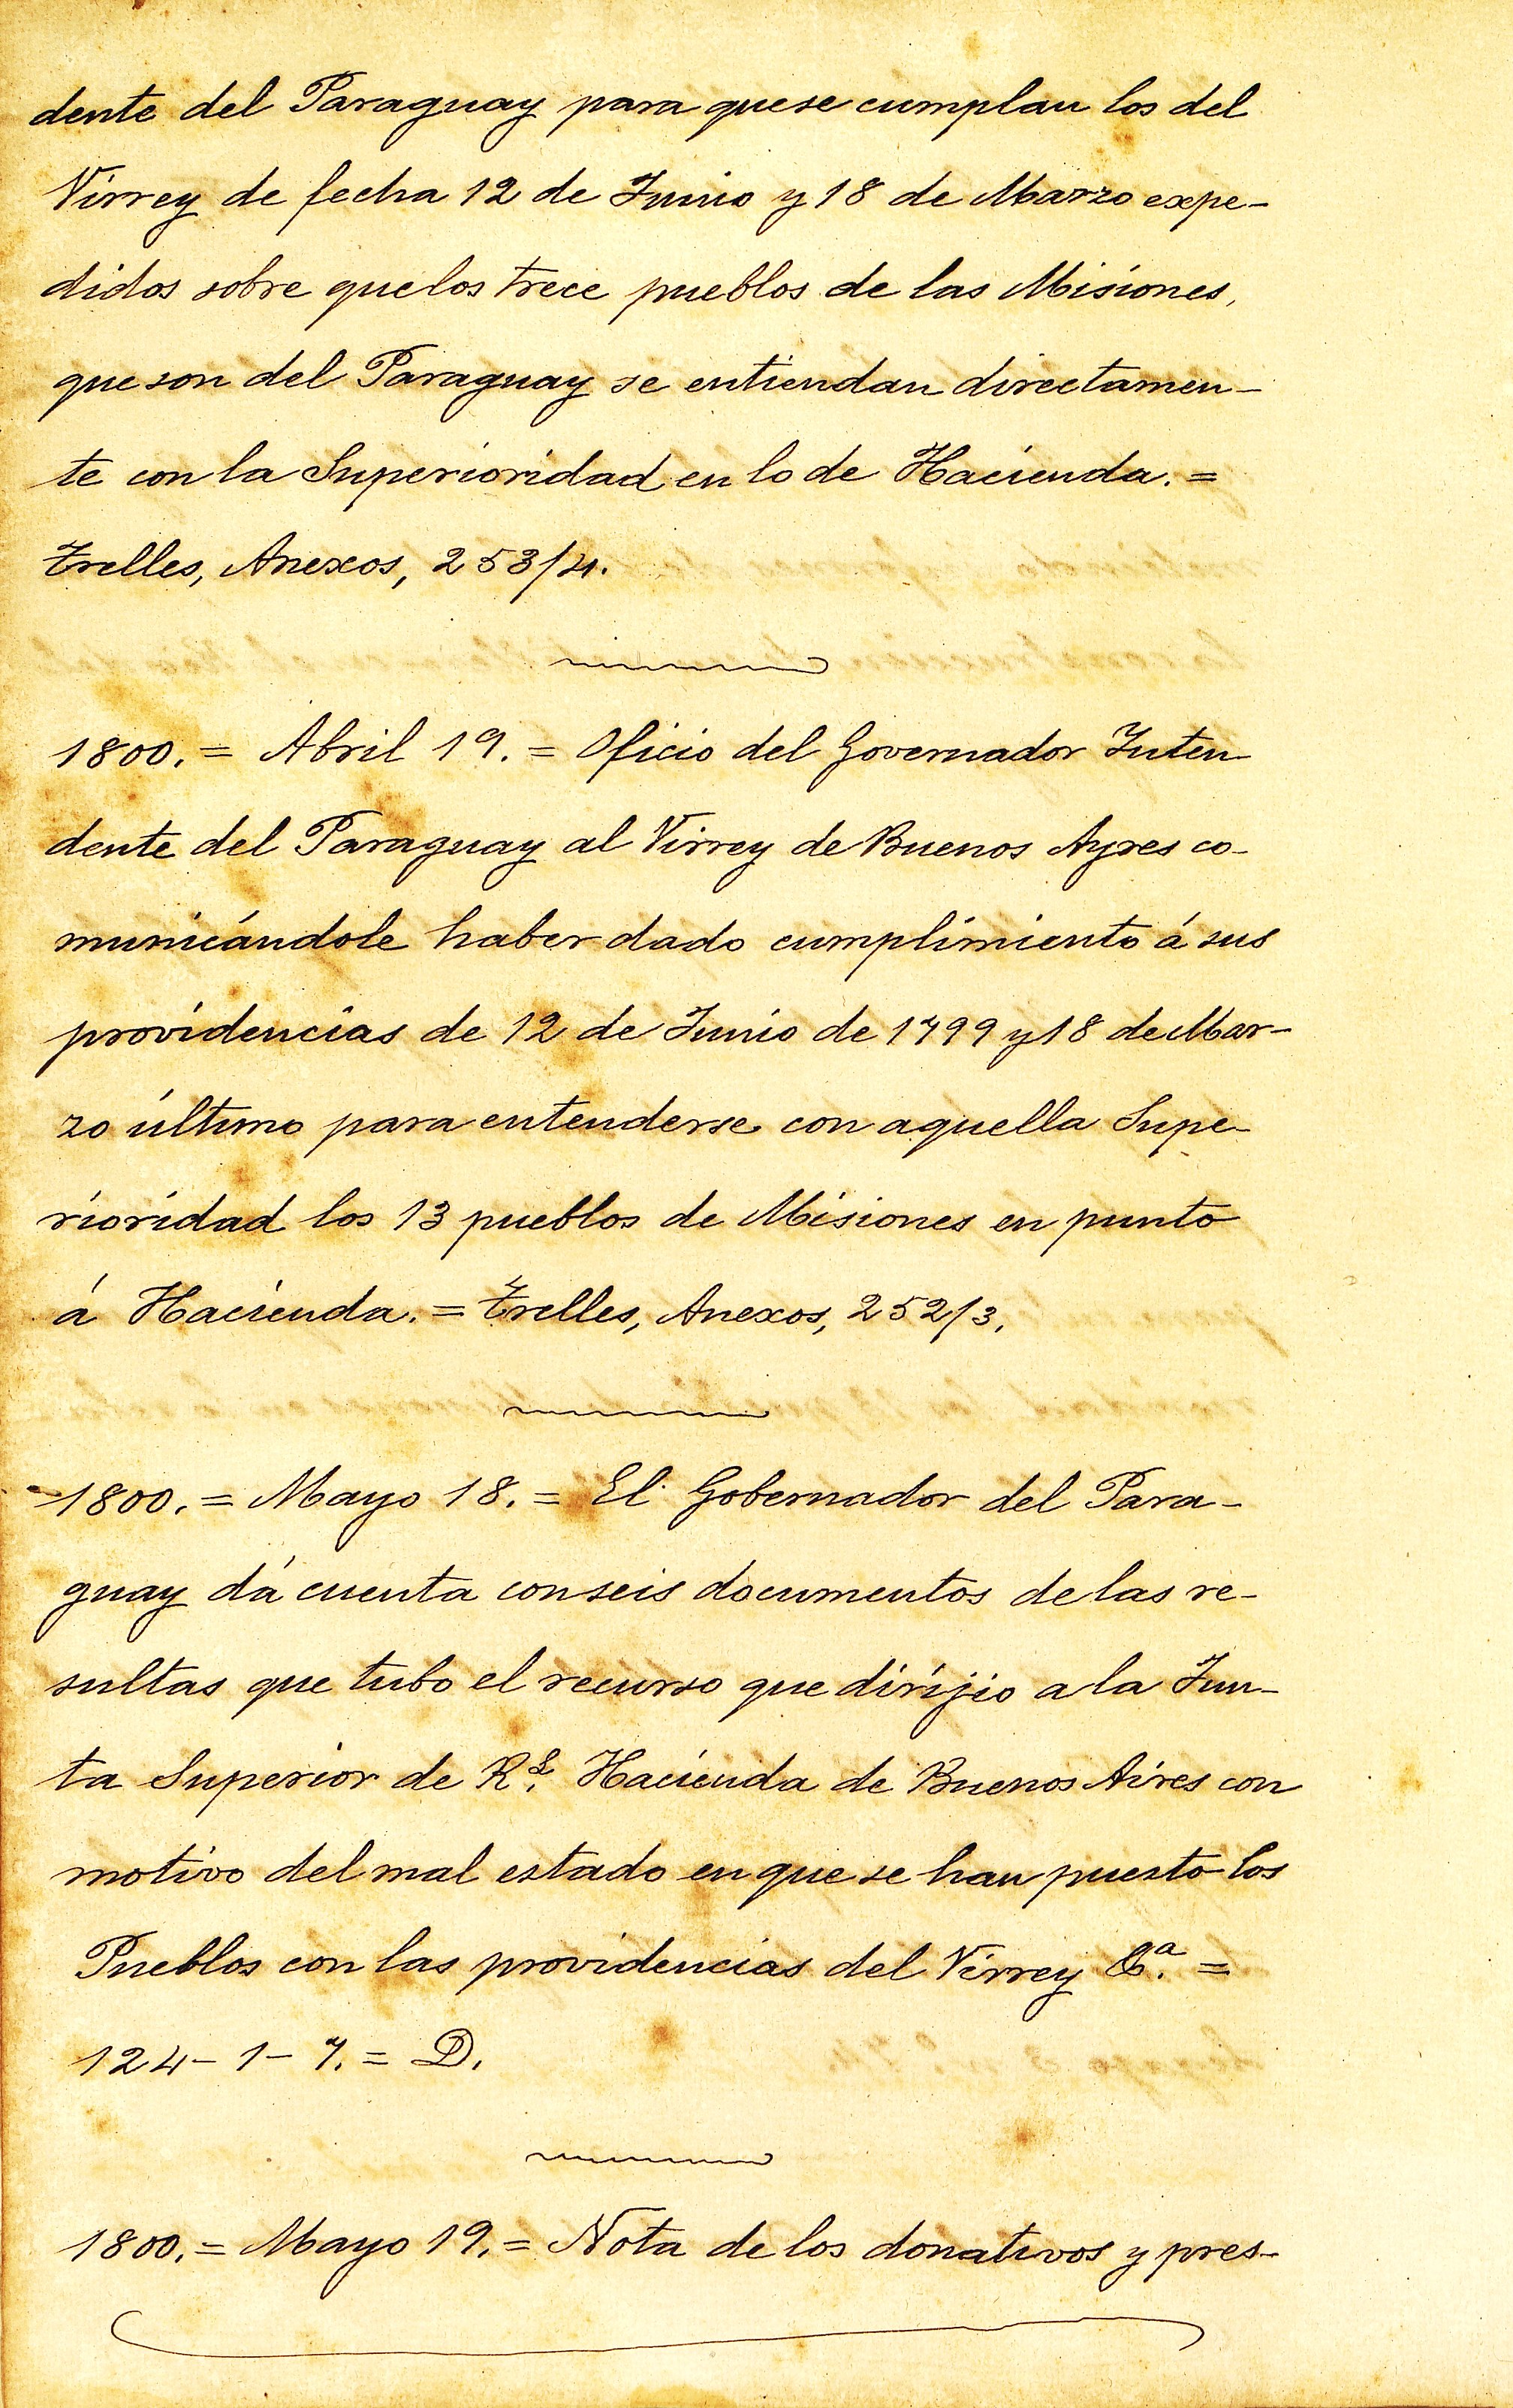 dente del Paraguay para que se cumplan los del
Virrey de fecha 12 de Junio y 18 de Marzo expe-
didos sobre que los trece pueblos de las Misiones,
que son del Paraguay se entiendan directamen-
te con la Superioridad en lo de Hacienda. =
Trelles, Anexos, 253/4.
1800. = Abril 19. = Oficio del Governador Inten-
dente del Paraguay al Virrey de Buenos Ayres co-
municándole haber dado cumplimiento á sus
providencias de 12 de Junio de 1799 y 18 de Mar-
zo último para entenderse con aquella Supe-
rioridad los 13 pueblos de Misiones en punto
á Hacienda. = Trelles, Anexos, 252/3.
1800. = Mayo 18. = El Gobernador del Para-
guay dá cuenta con seis documentos de las re-
sultas que tubo el recurso que dirijio a la Jun-
ta Superior de Rl. Hacienda de Buenos Aires con
motivo del mal estado en que se han puesto los
Pueblos con las providencias del Virrey &a. =
124-1-7. = D.
1800. = Mayo 19. = Nota de los donativos y pres-